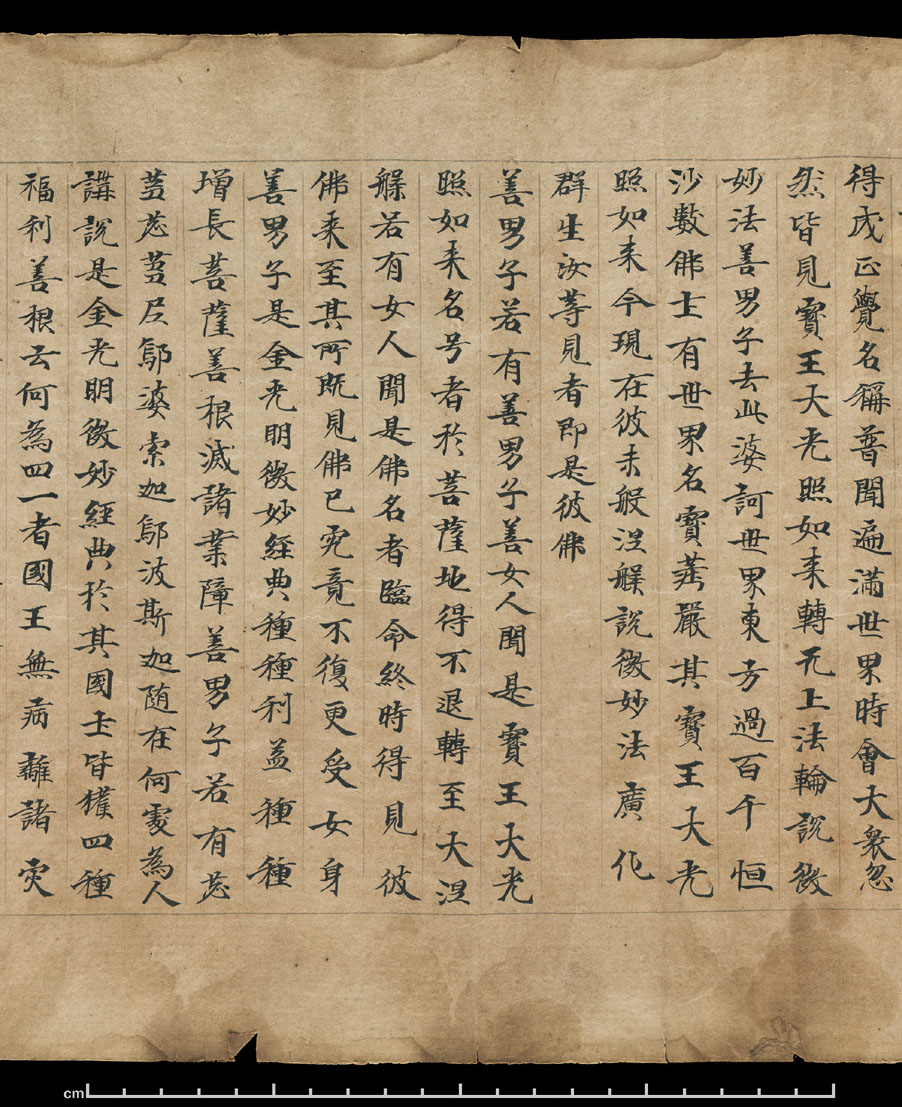 得成正覺名稱普聞遍滿世界時會大衆忽
然皆見寳王大光照如来轉无上法輪說微
妙法善男子去此娑訶世界東方過百千恒
沙數佛土有世界名寳莊嚴其寳王大光
照如来今現在彼未般涅槃說微妙法廣化
群生汝等見者即是彼佛
善男子若有善男子善女人聞是寳王大光
照如来名号者於菩薩地得不退轉至大涅
槃若有女人聞是佛名者臨命終時得見彼
佛来至其所既見佛已究竟不復更受女身
善男子是金光明微妙經典種種利益種種
增長菩薩善根滅諸業障善男子若有苾
芻苾芻尼鄔婆索迦鄔波斯迦随在何處為人
講說是金光明微妙經典於其國土皆獲四種
福利善根云何為四一者國王無病離諸灾
cm